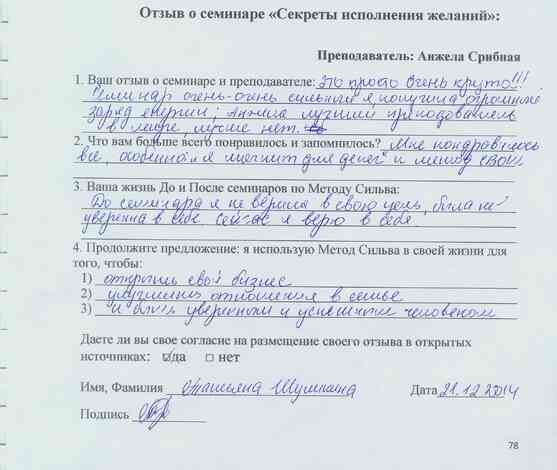 Отзыв о семинаре «Секреты исполнения желаний»:
Преподаватель: Анжела Срибная
1. Ваш отзыв о семинаре и преподавателе: Это просто очень круто!!!
Семинар очень-очень сильный я получила огромный
заряд енергии, Анжела лучший преподователь
в мире, лучше нет.
2. Что вам больше всего понравилось и запомнилось? Мне понравилось
все, особенно "магнит для денег" и
3. Ваша жизнь До и После семинаров по Методу Сильва:
До семинара я не верила в свою цель, была не
уверенна в себе сейчас я верю в себя
4. Продолжите предложение: я использую Метод Сильва в своей жизни для
того, чтобы:
1) открыть свой бизнес
2) улучшить отношения в семье
3) и быть уверенным и успешным человеком
Даете ли вы свое согласие на размещение своего отзыва в открытых
источниках: да нет
Имя, Фамилия Татьяна Дата 21.12.2014
Подпись
78